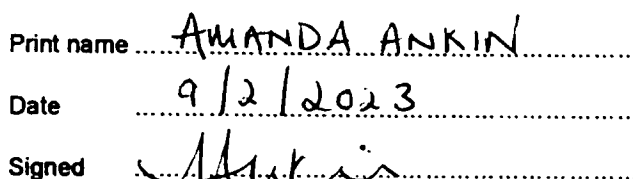 Print name AMANDA ANKIN
Date 9/2/2023
Signed